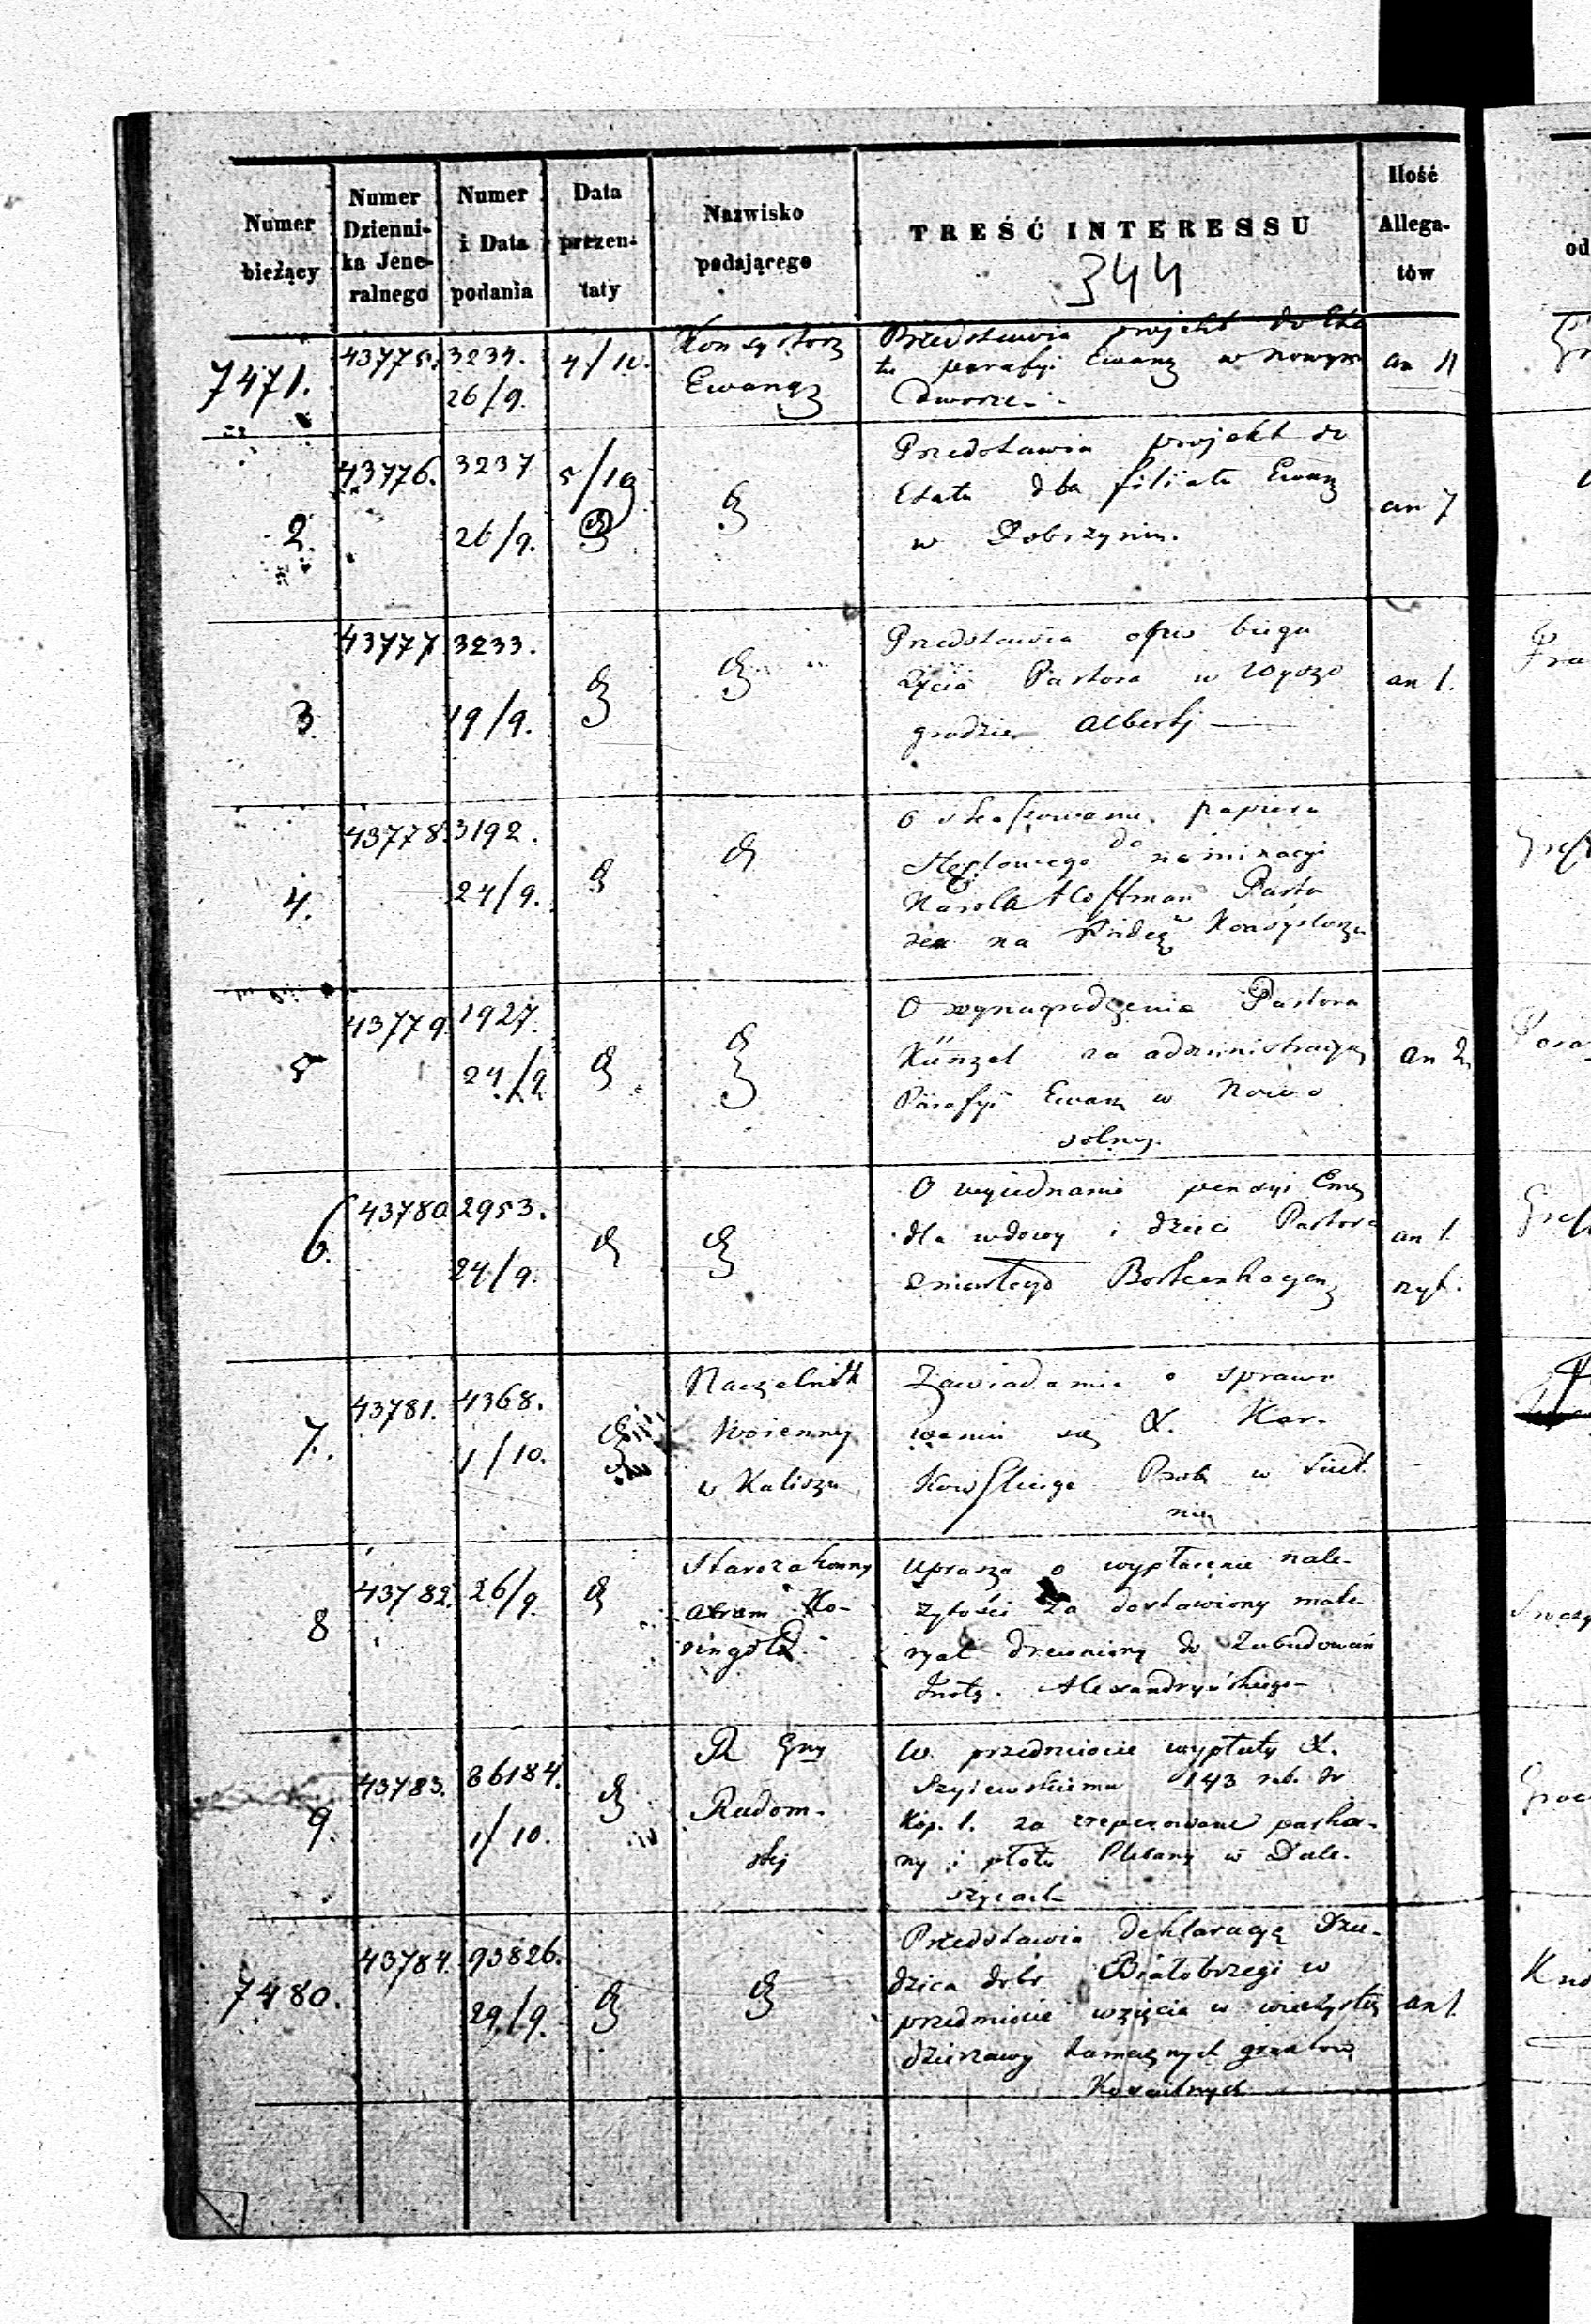 Numer bieżący
Numer Dzienni- ka Jene- ralnego
Numer i Data podania
Data prezen- taty
Nazwisko podającego
TREŚĆ INTERESSU
Ilość Allega- tów
344
7471.
43775.
3234.
26/9.
4/10.
Konsystorz
Ewang
Przedstawia projekt do Eta
tu parafyi Ewang w Nowym
Dworze.
an 11
2.
43776.
3237
26/9.
5/10
Przedstawia projekt do
Etatu dla filiatu Ewang
w Dobrzyniu.
an 7
3.
43777
3233.
19/9.
Przedstawia opis biegu
życia Pastora w Wyszo
grodzie Alberty
an 1.
4.
43778.
3192.
24/9.
O skassowaniu papieru
Stęplowego do nominacyi
Karola Hoffman Pasto
ra na Radcę Konsystorza
5
43779.
1927.
24/9
O wynagrodzenie Pastora
Künzel za administracyą
Parafyi Ewang w Nowo
solny.
an 2
6.
43780.
2953.
24/9.
O wyjednanie pensyi Em
dla wdowy i dzieci Pastora
zmarłego Borkenhagen
an 1.
7.
43781.
4368.
1/10.
Naczelnik
Woienny
w Kaliszu
Zawiadamia o sprawo
waniu się X. Kar.
kowskiego Prob w
8
43782.
26/9.
Starozakonny
Abram
Uprasza o wypłacenie nale-
żytości za dostawiony mate-
ryał drewniany do Zabudowań
Insty. Alexandryńskiego
9.
43783.
36184.
1/10.
R Gny
Radom-
skij
W przedmiocie wypłaty X.
Szyiewskiemu 143 rub. sr
kop. 1. za zreperowane parka-
ny i płoty Plebanij w Dale-
szycach
7480.
43784.
93826.
29/9.
Przedstawia Deklaracyą Dzie-
dzica dobr Białobrzegi w
przedmiocie wzięcia w wieczystą
dzierzawę tamecznych gruntow
Koscielnych
an 1.